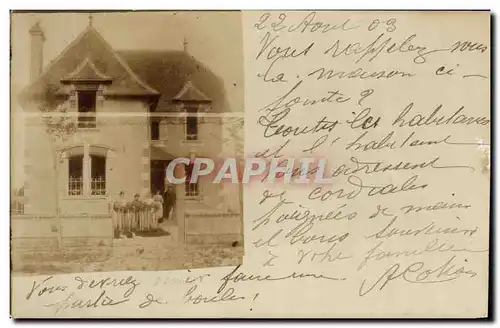 22 Aout 03
Vous rappelez vous
la maison ci-
jointe ?
Toutes les habitants
et l'habitant
vous adressent
de cordiales
poignées de mains
et bons
à votre famille
Vous devriez venir faire une
partie de boules !
CPARAMA